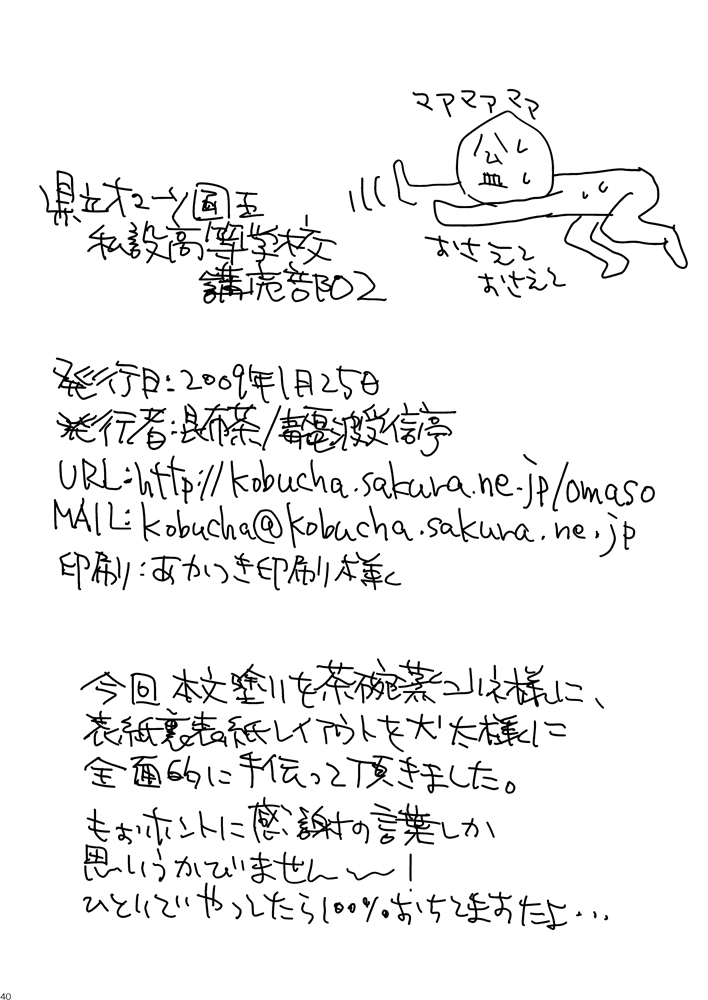 マアマアマア
県立オマーン国王
私設高等学校
購売部02
おさえて
おさえて
発行日:2009年1月25日
発行者:昆布茶/毒電波受信亭
URL:http://kobucha.sakura.ne.jp/omaso
MAIL:kobucha@kobucha.sakura.ne.jp
印刷:あかつき印刷様
今回 本文塗りを茶碗蒸コルネ様に、
表紙裏表紙レイアウトを犬太様に
全面的に手伝って頂きました。
もぉホントに感謝の言葉しか
思いうかびません〜!
ひとりでやってたら100%おちてますたよ…
40